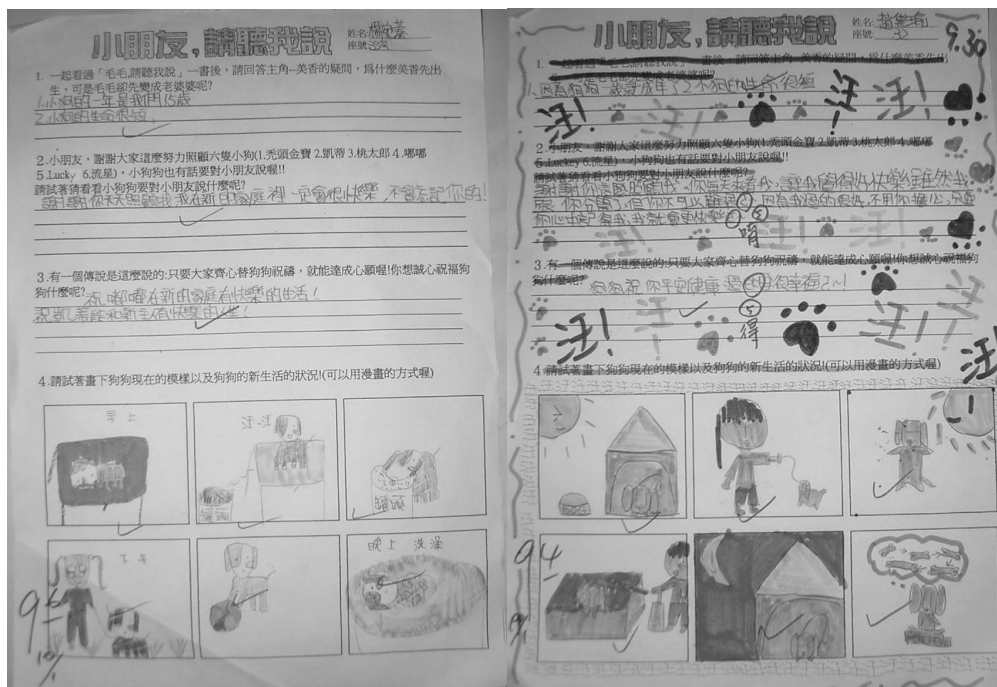 小朋友,請聽我說
姓名:
座號:
1. 一起看過「毛毛,請聽我說」一書後，請回答主角--美香的疑問，為什麼美香先出
生，可是毛毛卻先變成老婆婆呢?
1.小狗的一年是我們15歲
2.小狗的生命很短。
2.小朋友，謝謝大家這麼努力照顧六隻小狗(1.禿頭金寶 2.凱蒂 3.桃太郎 4.嘟嘟
5.Lucky 6.流星)，小狗狗也有話要對小朋友說喔!!
請試著猜看看小狗狗要對小朋友說什麼呢?
謝謝你天天照顧我 我在新的家庭裡一定會很快樂,不會忘記你的!
3.有一個傳說是這麼說的:只要大家齊心替狗狗祝禱，就能達成心願喔!你想誠心祝福狗
狗什麼呢?
祝嘟嘟在新的家庭有快樂的生活!
祝凱蒂能和新主人有快樂的人生!
4.請試著畫下狗狗現在的模樣以及狗狗的新生活的狀況!(可以用漫畫的方式喔)
早上
汪汪
罐頭
罐頭
下午
晚上 洗澡
96
10/1
小朋友,請聽我說
姓名:
座號: 32
9.30
1. 一起看過「毛毛,請聽我說」一書後，請回答主角--美香的疑問，為什麼美香先出
1.因為狗狗一歲就成年了2.小狗的生命很短
汪!
汪!
汪!
2.小朋友，謝謝大家這麼努力照顧六隻小狗(1.禿頭金寶 2.凱蒂 3.桃太郎 4.嘟嘟
5.Luckey 6.流星)，小狗狗也有話要對小朋友說喔!!
請試著猜看看小狗狗要對小朋友說什麼呢?
謝謝你這麼照顧我,你每天來看我,讓我覺得好快樂,雖然我
3.有一個傳說是這麼說的:只要大家齊心替狗狗祝禱，就能達成心願喔!你想誠心祝福狗
狗什麼呢?
汪!
汪!
得
汪!
汪!
4.請試著畫下狗狗現在的模樣以及狗狗的新生活的狀況!(可以用漫畫的方式喔)
94